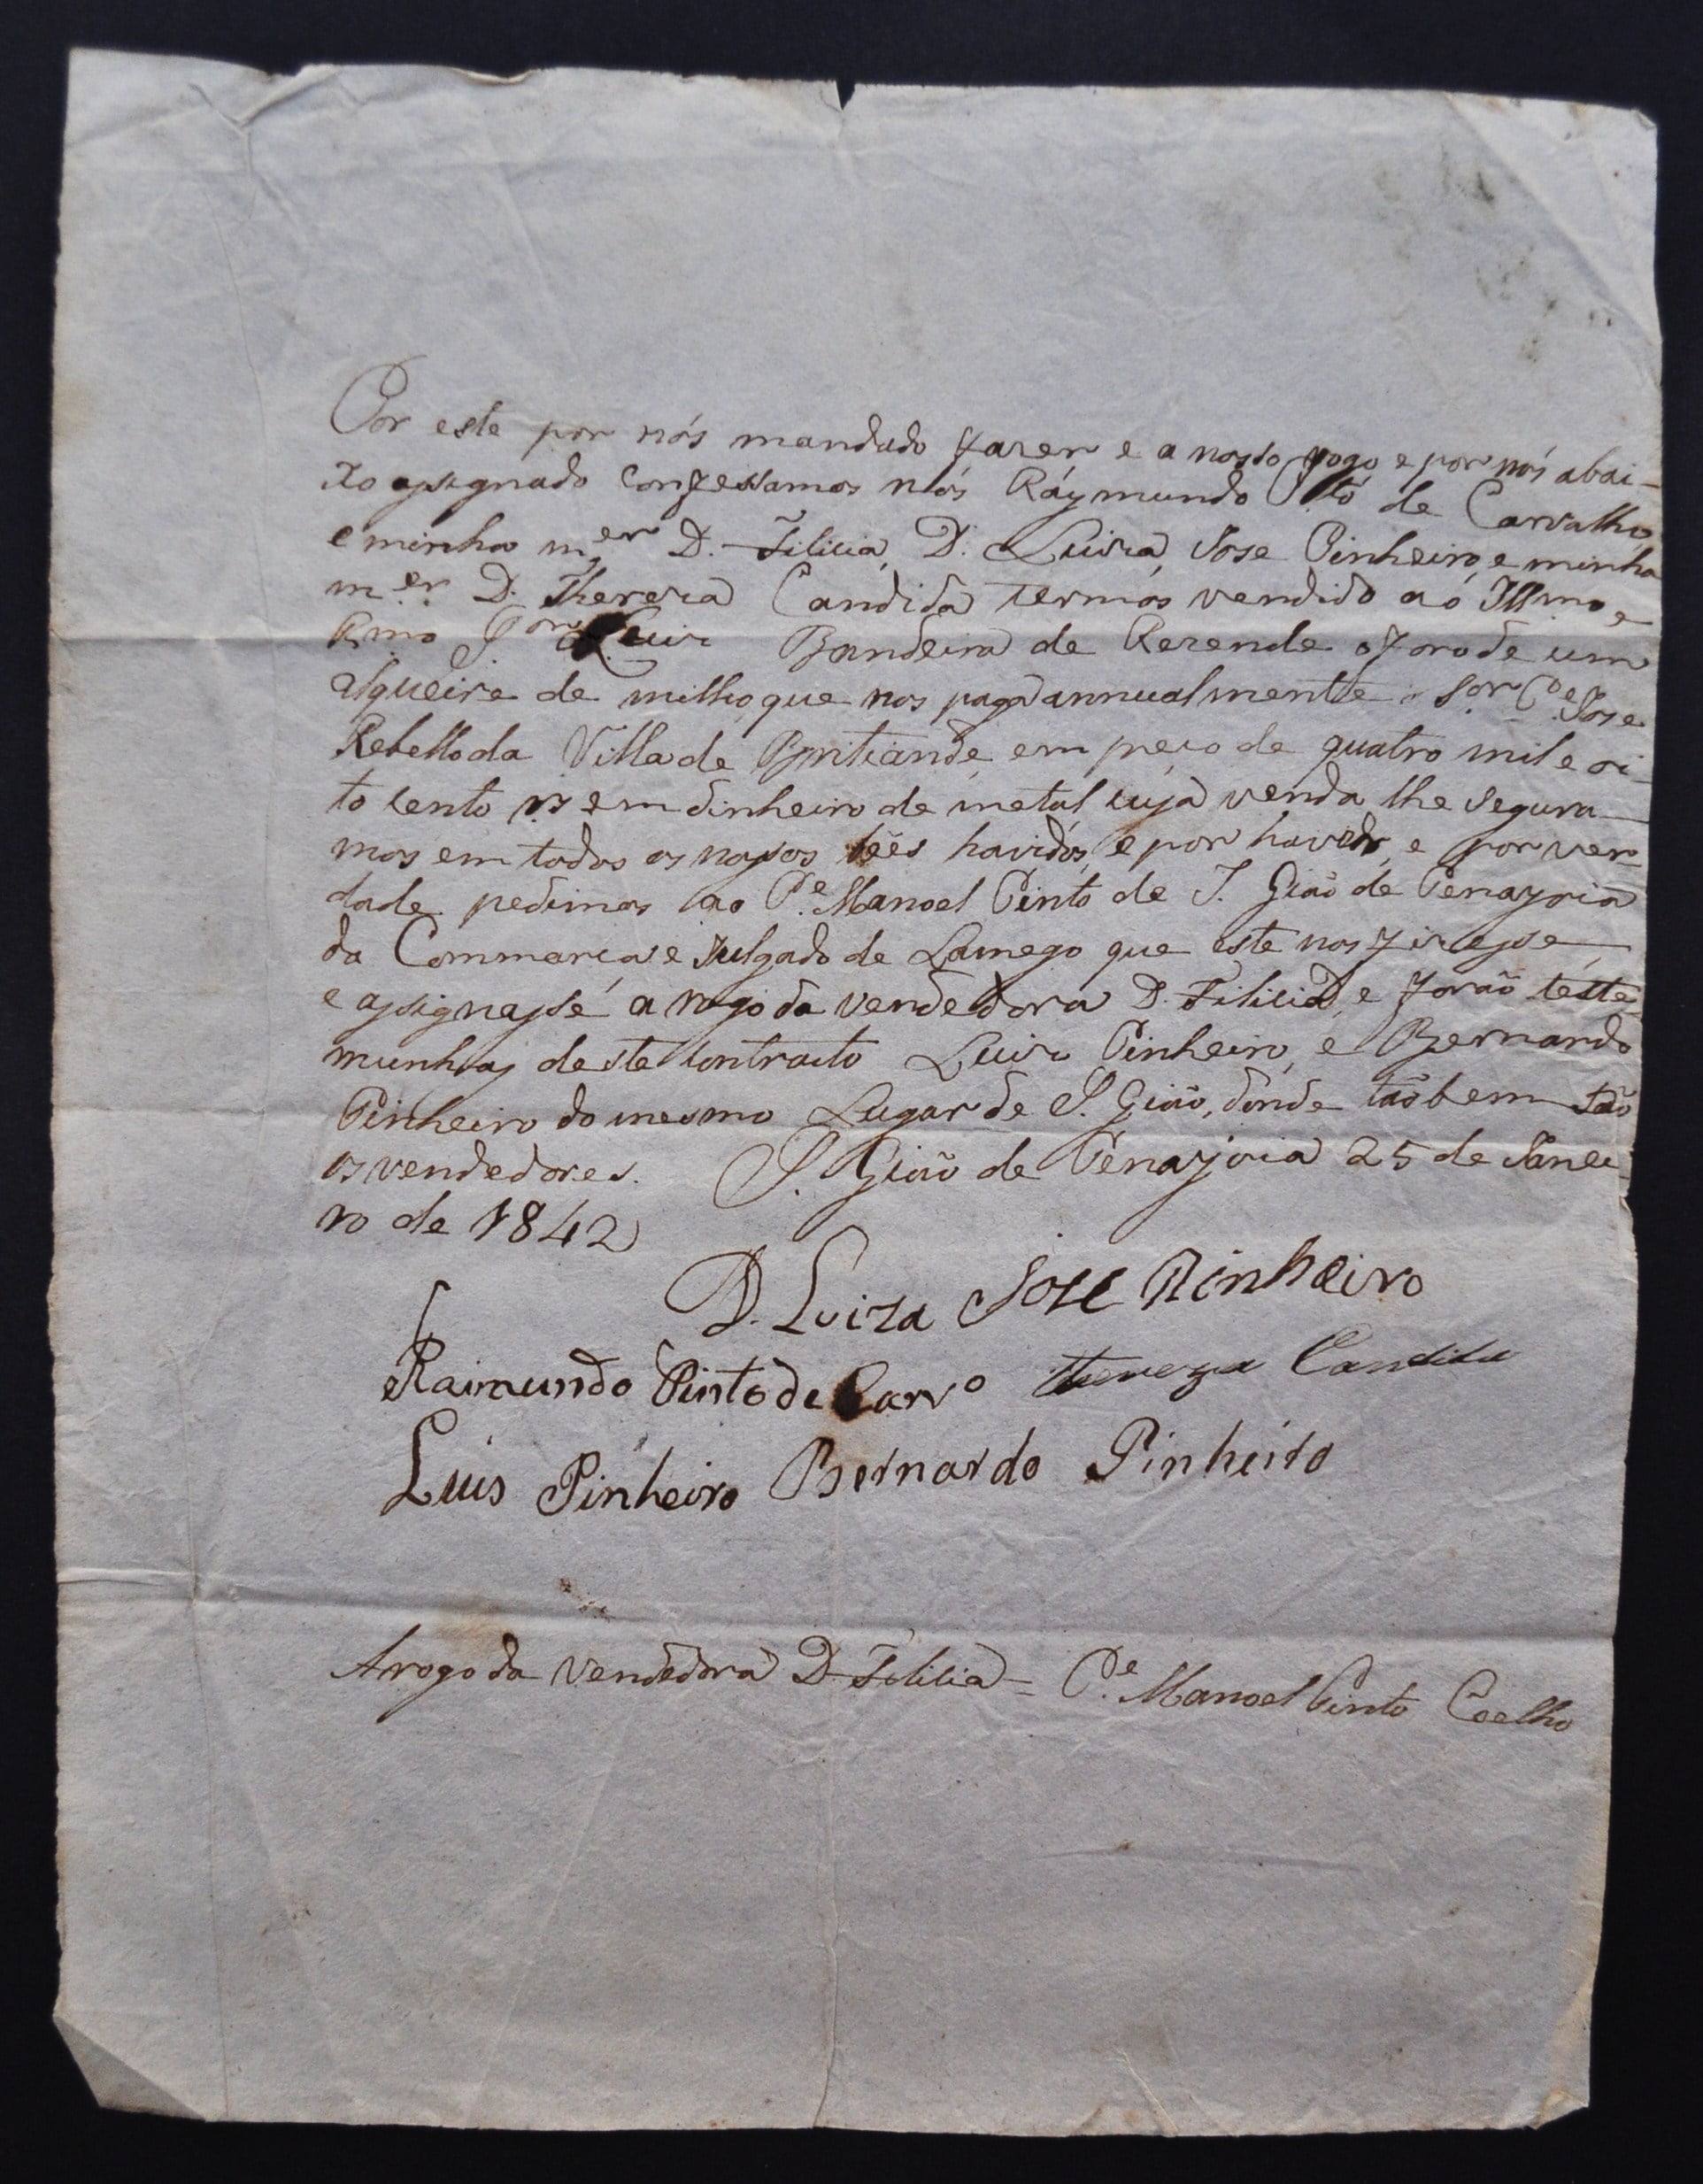 Por este por nós mandado fazer e a nosso rogo e por nós abai-
xo assignado confessamos nós Ráymundo Pto de Carvalho,
e minha mer D. Filicia, D. Luiza, Jose Pinheiro, e minha
mer D. Thereza Candida termos vendido ao Illmo e
Rmo Sor Luiz Bandeira de Rezende o foro de um
alqueire de milho, que nos paga annualmente o Sor Pe Jose
Rebello da Villa de Britiande, em preço de quatro mil e oi-
to cento rs em dinheiro de metal, cuja venda lhe segura-
mos em todos os nossos bẽes havidos, e por haver, e por ver-
dade pedimos ao Pe Manoel Pinto de S. Gião de Penajoia
da Commarca e Julgado de Lamego que este nos fizesse,
e assignasse a rogo da vendedora D. Filicia, e forão teste-
munhas deste contracto Luiz Pinheiro, e Bernardo
Pinheiro do mesmo Lugar de S. Gião, donde tãobem são
os vendedores. S. Gião de Penajoia 25 de Janei-
ro de 1842
D. Luiza Jose Pinheiro
Raimundo Pinto de Carvo Thereza Candida
Luis Pinheiro Bernardo Pinheiro
A rogo da vendedora D. Filicia = Pe Manoel Pinto Coelho